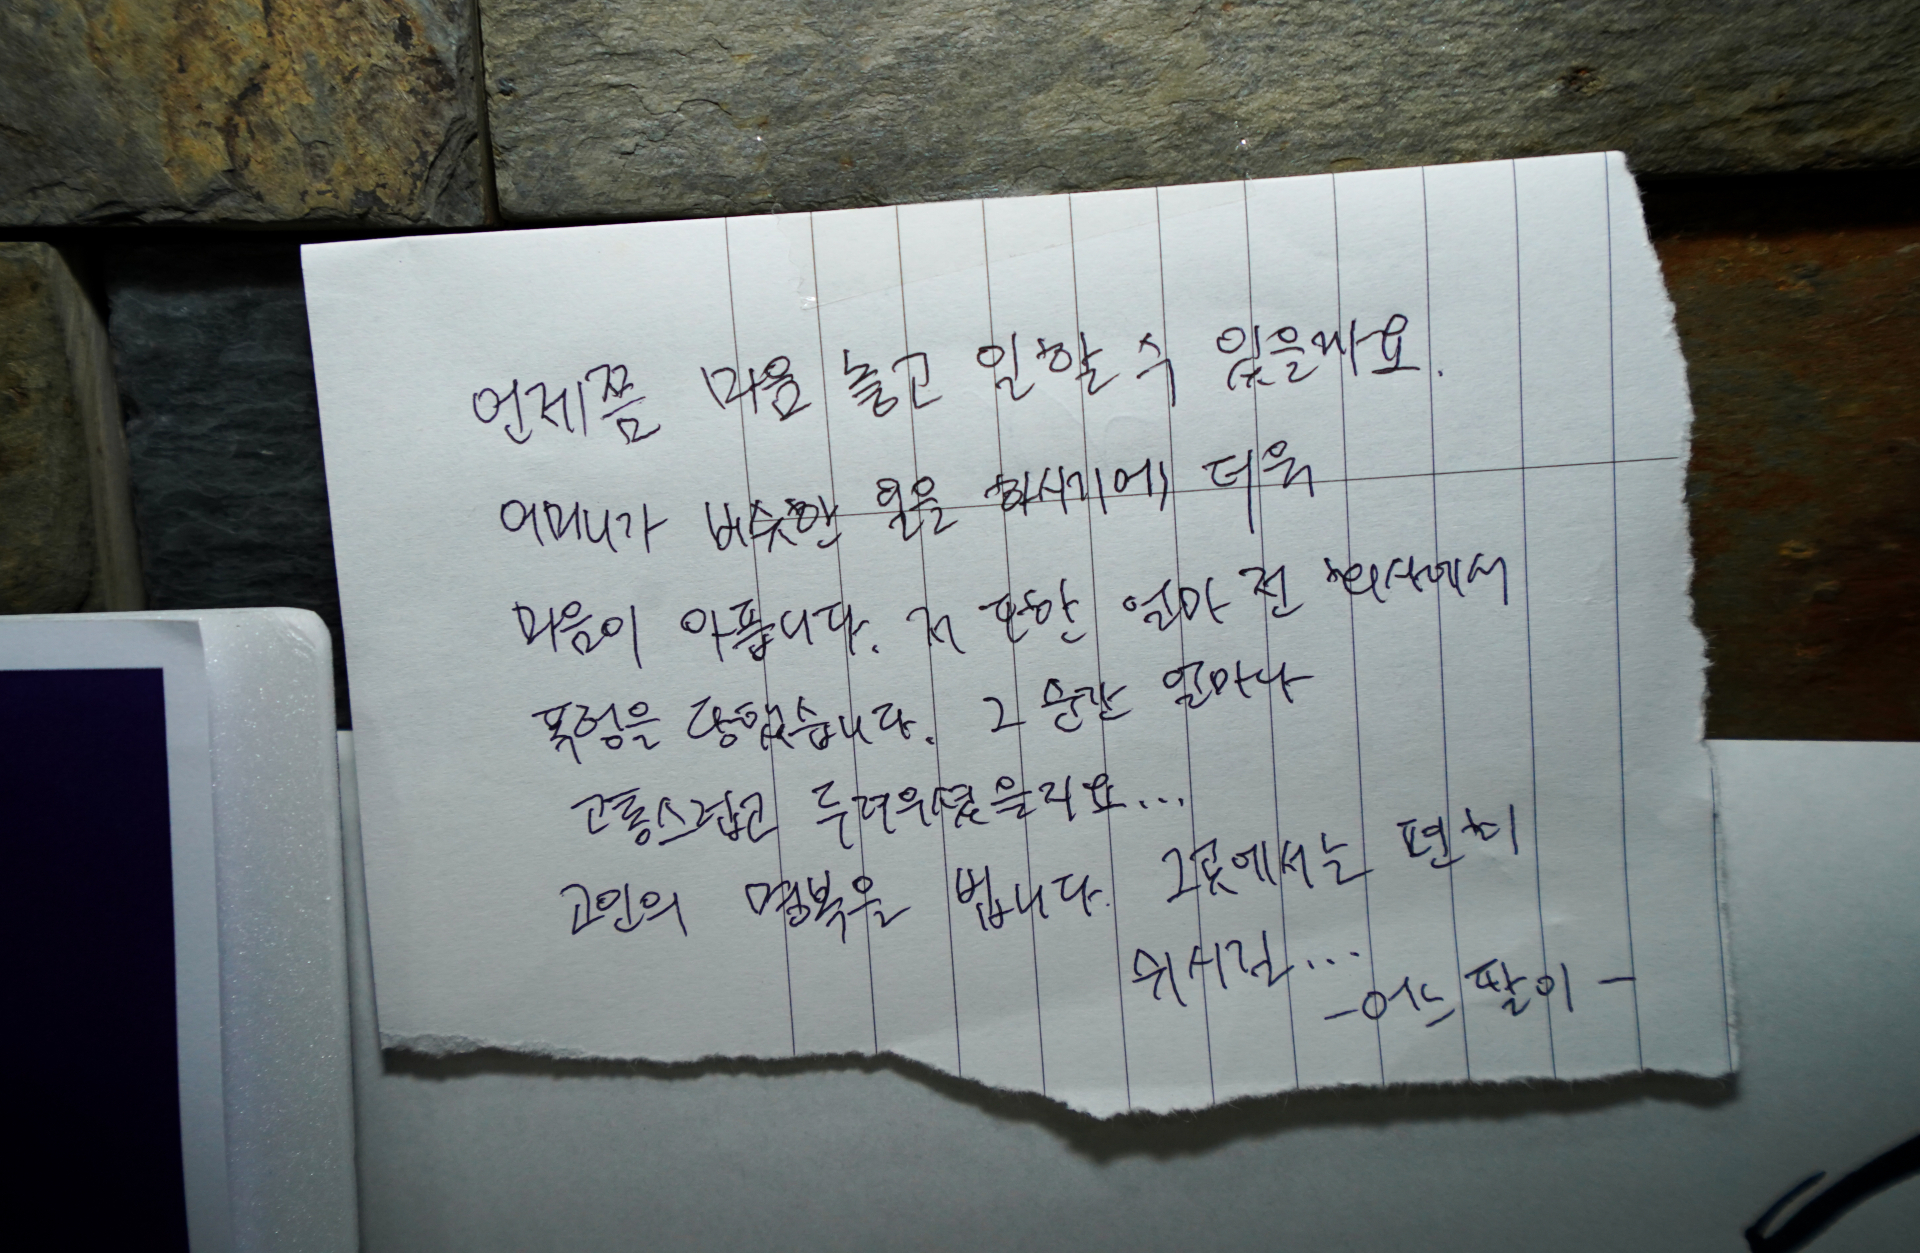 언제쯤 마음 놓고 일할 수 있을까요.
어머니가 비슷한 일을 하시기에 더욱
마음이 아픕니다. 저 또한 얼마 전 회사에서
폭행을 당했습니다. 그 순간 얼마나
고통스럽고 두려우셨을지요...
고인의 명복을 빕니다. 그곳에서는 편히
쉬시길...
-어느 딸이-